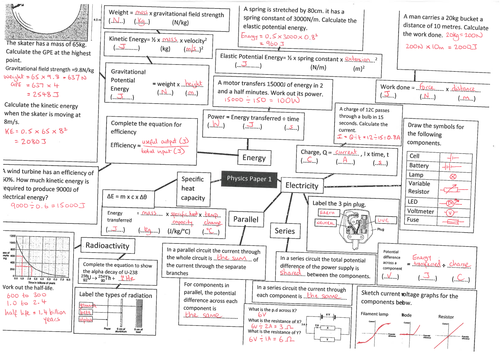 The skater has a mass of 65kg.
Calculate the GPE at the highest
point.
Gravitational field strength =9.8N/kg
Calculate the kinetic energy
when the skater is moving at
8m/s.
KE = 0.5 x 65 x 8²
= 2080J
A wind turbine has an efficiency of
How much kinetic energy is
required to produce 9000J of
electrical energy?
9000 ÷ 0.6 = 15000J
Weight = mass x gravitational field strength
(N) (kg) (N/kg)
Kinetic Energy= ½ x mass x velocity²
(J) (kg) (m/s)²
Gravitational
Potential
Energy
= weight x height
(J) (N) (m)
Complete the equation for
efficiency
Efficiency = useful output (J)
total input (J)
A spring is stretched by 80cm. it has a
spring constant of 3000N/m. Calculate the
elastic potential energy.
Energy = 0.5 x 3000 x 0.8²
= 960J
Elastic Potential Energy= ½ x spring constant x extension²
(J) (N/m) (m)²
A motor transfers 15000J of energy in 2
and a half minutes. Work out its power.
15000 ÷ 150 = 100W
Power = Energy transferred ÷ time
(W) (J) (s)
A man carries a 20kg bucket a
distance of 10 metres. Calculate
the work done.
200N x 10m = 2000J
Work done = force x distance
(J) (N) (m)
A charge of 12C passes
through a bulb in 15
seconds. Calculate the
current.
Charge, Q = current, I x time, t
(C) (A) (s)
Draw the symbols for
the following
components.
Cell
Battery
Lamp
Variable
Resistor
LED
Voltmeter
Fuse
Energy
Physics Paper 1
Specific
heat
capacity
Electricity
Parallel
Series
Radioactivity
ΔE = m x c x Δθ
Energy
transferred
= mass x specific heat capacity x temp. change
(J) (kg) (J/kg/°C) (°C)
Label the 3 pin plug.
Plug
Potential
difference
across a
component
= Energy transferred ÷ charge
(V) (J) (C)
In a parallel circuit the current through
the whole circuit is the sum of
the current through the separate
branches
In a series circuit the total potential
difference of the power supply is
shared between the components.
For components in
parallel, the potential
difference across each
component is
the same
In a series circuit the current through
each component is the same
What is the p.d across X?
6V
What is the resistance of X?
6V ÷ 2A = 3Ω
What is the resistance of Y?
6V ÷ 1A = 6Ω
Sketch current voltage graphs for the
components below.
Filament lamp
Resistor
Complete the equation to show
the alpha decay of U-238
Label the types of radiation
Work out the half-life.
600 to 300
1.0 to 2.4
half life = 1.4 billion
years